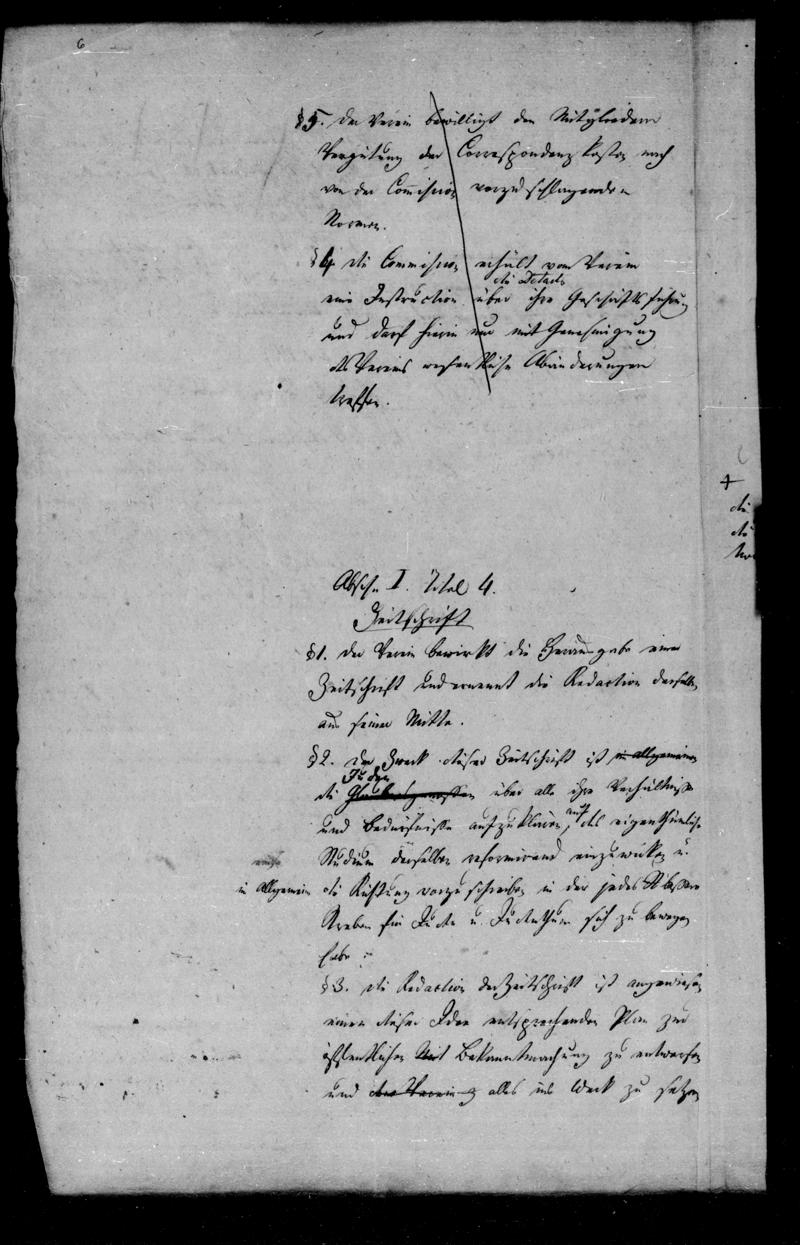 6
§5. Der Verein bewilligt den Mitgliedern
Vergütung der Correspondenzkosten nach
von der Com̄ission vorzuschlagenden
Normen.
§6 die Commission erhält vom Verein
die Details
eine Instruction über ihre Geschäftsführung
und darf hierin nur mit Genehmigung
des Vereins Abänderungen
treffen.
Abschn. I. Titel 4.
Zeitschrift
§1. der Verein bewirkt die Herausgabe einer
Zeitschrift und ernennt die Redaction derselben
aus seiner Mitte.
§2. Der Zweck dieser Zeitschrift ist im allgemeinen
Juden
die Glaubensgenossen über alle ihre Verhältnisse
und Bedürfnisse aufzuklären, auf das eigenthümliche
Studium derselben reformirend einzuwirken u.
im Allgemeinen die Richtung vorzuschreiben in der jedes bessere
Streben für Juden u. Judenthum sich zu bewegen
habe.
§3. die Redaction der Zeitschrift ist angewiesen
einen dieser Idee entsprechenden Plan zur
öffentlichen Bekanntmachung zu entwerfen
und alles ins Werk zu setzen
+
die